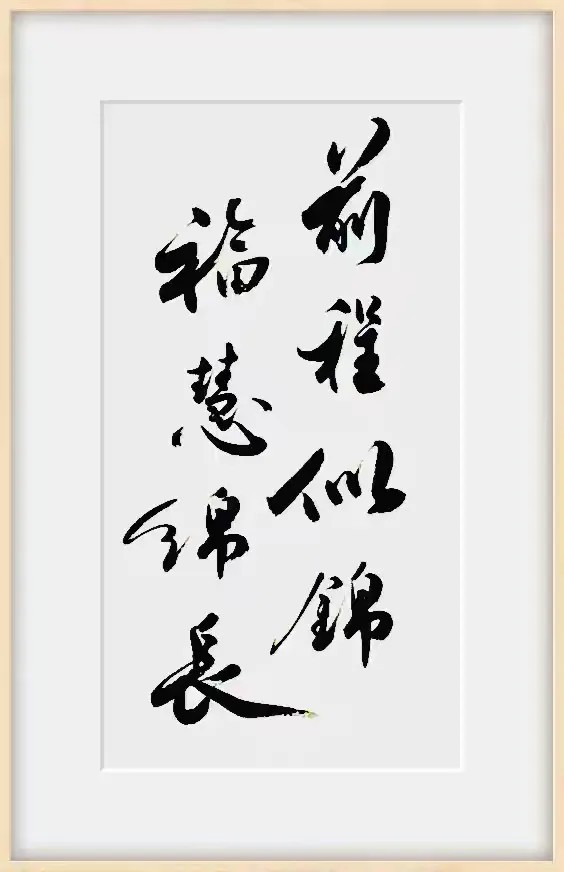 前程似錦
福慧綿長